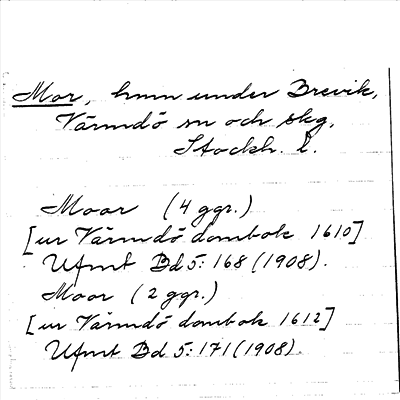 Mor, hmn under Brevik,
Värmdö sn och skg,
Stockh. l.
Moor (4 ggr.)
[ur Värmdö dombok 1610]
Ufmt Bd 5:168 (1908).
Moor (2 ggr.)
[ur Värmdö dombok 1612]
Ufmt Bd 5:171 (1908).